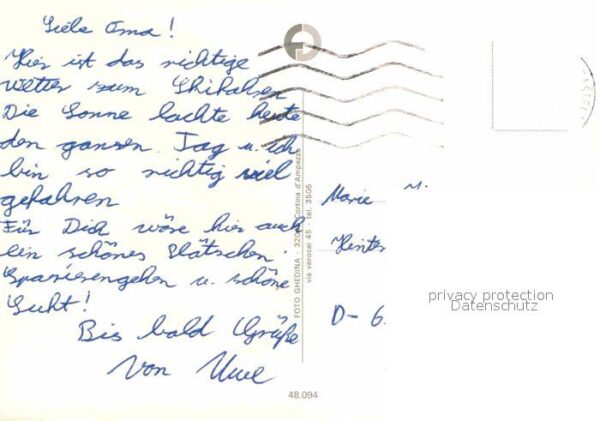 Liebe Oma!
Hier ist das richtige
Wetter zum Skifahren
Die Sonne lachte heute
den ganzen Tag u. ich
bin so richtig viel
gefahren
Für Dich wäre hier auch
ein schönes Plätzchen.
Spazierengehen u. schöne
Sicht!
Bis bald Grüße
von Uwe
FOTO GHEDINA - Cortina d'Ampezzo
via verocai 45 - tel. 3505
48.094
Marie M.
Hinter
D-6
privacy protection
Datenschutz